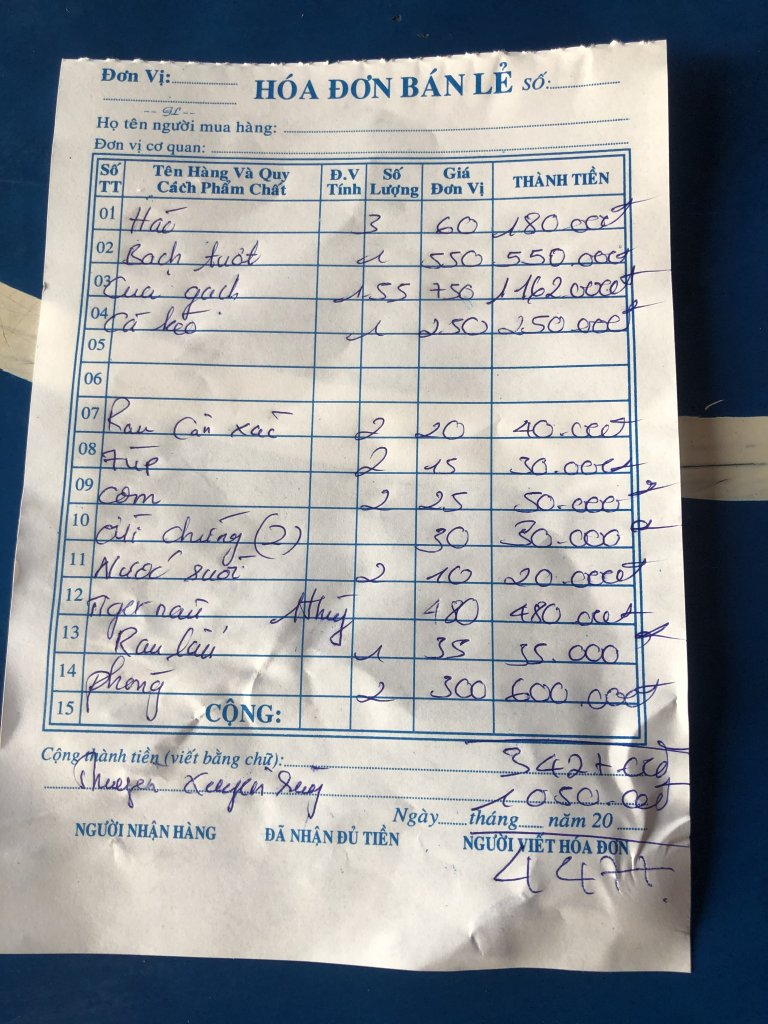 Đơn Vị:
HÓA ĐƠN BÁN LẺ Số:
Họ tên người mua hàng:
Đơn vị cơ quan:
Số TT Tên Hàng Và Quy Cách Phẩm Chất Đ.V Tính Số Lượng Giá Đơn Vị THÀNH TIỀN
01 3 60 180.000đ
02 Bạch tuột 1 550 550.000đ
03 Cua gạch 1.55 750 1162.000đ
04 Cá kèo 1 250 250.000đ
05
06
07 Rau 2 20 40.000đ
08 2 15 30.000đ
09 Cơm 2 25 50.000đ
10 (2) 30 30.000đ
11 Nước suối 2 10 20.000đ
12 Tiger nâu 1 thùng 480 480.000đ
13 Rau lẩu 1 35 35.000đ
14 phòng 2 300 600.000đ
15 CỘNG:
Cộng thành tiền (viết bằng chữ): 3427.000đ
1050.000đ
Ngày tháng năm 20
NGƯỜI NHẬN HÀNG ĐÃ NHẬN ĐỦ TIỀN NGƯỜI VIẾT HÓA ĐƠN
4477